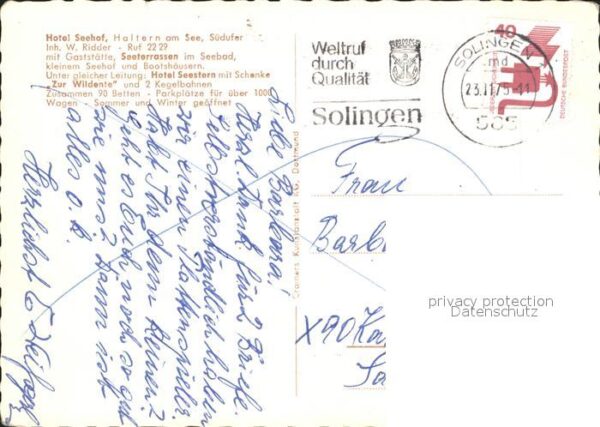 Hotel Seehof, Haltern am See, Südufer
Inh. W. Ridder - Ruf 22 29
mit Gaststätte, Seeterrassen im Seebad,
kleinem Seehof und Bootshäusern.
Unter gleicher Leitung: Hotel Seestern mit Schenke
"Zur Wildente" und 2 Kegelbahnen
Zusammen 90 Betten - Parkplätze für über 1000
Wagen - Sommer und Winter geöffnet
Liebe Barbara!
Herzl. Dank für 2 Briefe.
Selbstverständlich haben
wir einen Plattenspieler.
Habt Ihr denn keinen?
Geht es Euch noch so gut
wie uns? Dann ist
alles o.k.
Herzlichst
Cramers Kunstanstalt KG, Dortmund
Weltruf
durch
Qualität
Solingen
SOLINGEN 1
md
23.11.75-11
565
40
DEUTSCHE BUNDESPOST
Frau
Barb
X90 Ka
Sa
privacy protection
Datenschutz